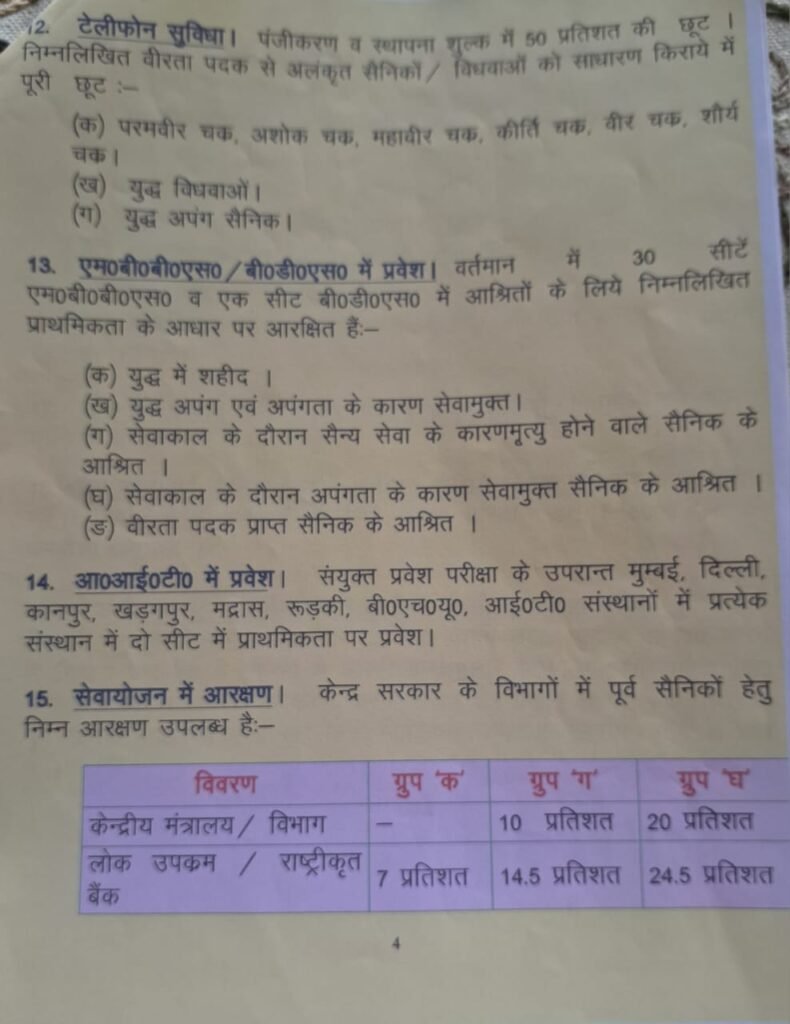 12. टेलीफोन सुविधा। पंजीकरण व स्थापना शुल्क में 50 प्रतिशत की छूट ।
निम्नलिखित वीरता पदक से अलंकृत सैनिकों / विधवाओं को साधारण किराये में
पूरी छूट :–
(क) परमवीर चक, अशोक चक, महावीर चक, कीर्ति चक, वीर चक, शौर्य
चक।
(ख) युद्ध विधवाओं।
(ग) युद्ध अपंग सैनिक।
13. एम0बी0बी0एस0 / बी0डी0एस0 में प्रवेश। वर्तमान में 30 सीटें
एम0बी0बी0एस0 व एक सीट बी0डी0एस0 में आश्रितों के लिये निम्नलिखित
प्राथमिकता के आधार पर आरक्षित हैं:–
(क) युद्ध में शहीद ।
(ख) युद्ध अपंग एवं अपंगता के कारण सेवामुक्त।
(ग) सेवाकाल के दौरान सैन्य सेवा के कारणमृत्यु होने वाले सैनिक के
आश्रित ।
(घ) सेवाकाल के दौरान अपंगता के कारण सेवामुक्त सैनिक के आश्रित ।
(ङ) वीरता पदक प्राप्त सैनिक के आश्रित ।
14. आ0आई0टी0 में प्रवेश। संयुक्त प्रवेश परीक्षा के उपरान्त मुम्बई, दिल्ली,
कानपुर, खड़गपुर, मद्रास, रूड़की, बी0एच0यू0, आई0टी0 संस्थानों में प्रत्येक
संस्थान में दो सीट में प्राथमिकता पर प्रवेश।
15. सेवायोजन में आरक्षण। केन्द्र सरकार के विभागों में पूर्व सैनिकों हेतु
निम्न आरक्षण उपलब्ध है:–
विवरण ग्रुप 'क' ग्रुप 'ग' ग्रुप 'घ'
केन्द्रीय मंत्रालय / विभाग – 10 प्रतिशत 20 प्रतिशत
लोक उपकम / राष्ट्रीकृत
बैंक 7 प्रतिशत 14.5 प्रतिशत 24.5 प्रतिशत
4